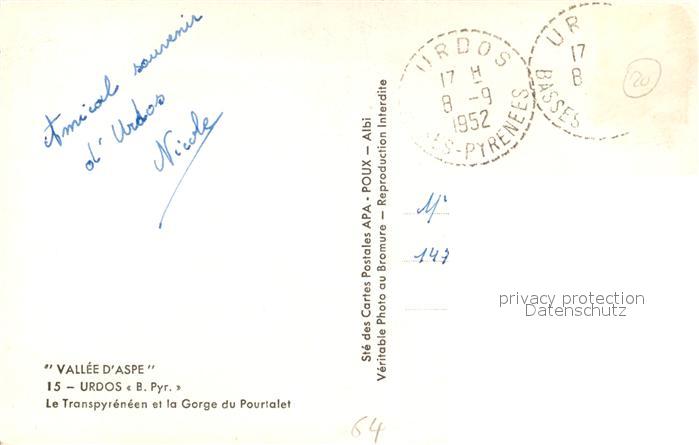 Amical souvenir
d'Urdos
Nicole
" VALLÉE D'ASPE "
15 – URDOS « B. Pyr. »
Le Transpyrénéen et la Gorge du Pourtalet
Sté des Cartes Postales APA - POUX – Albi
Véritable Photo au Bromure – Reproduction Interdite
URDOS
17 H
8 -9
1952
ES-PYRENEES
UR
17
8
BASSES
20
147
privacy protection
Datenschutz
64